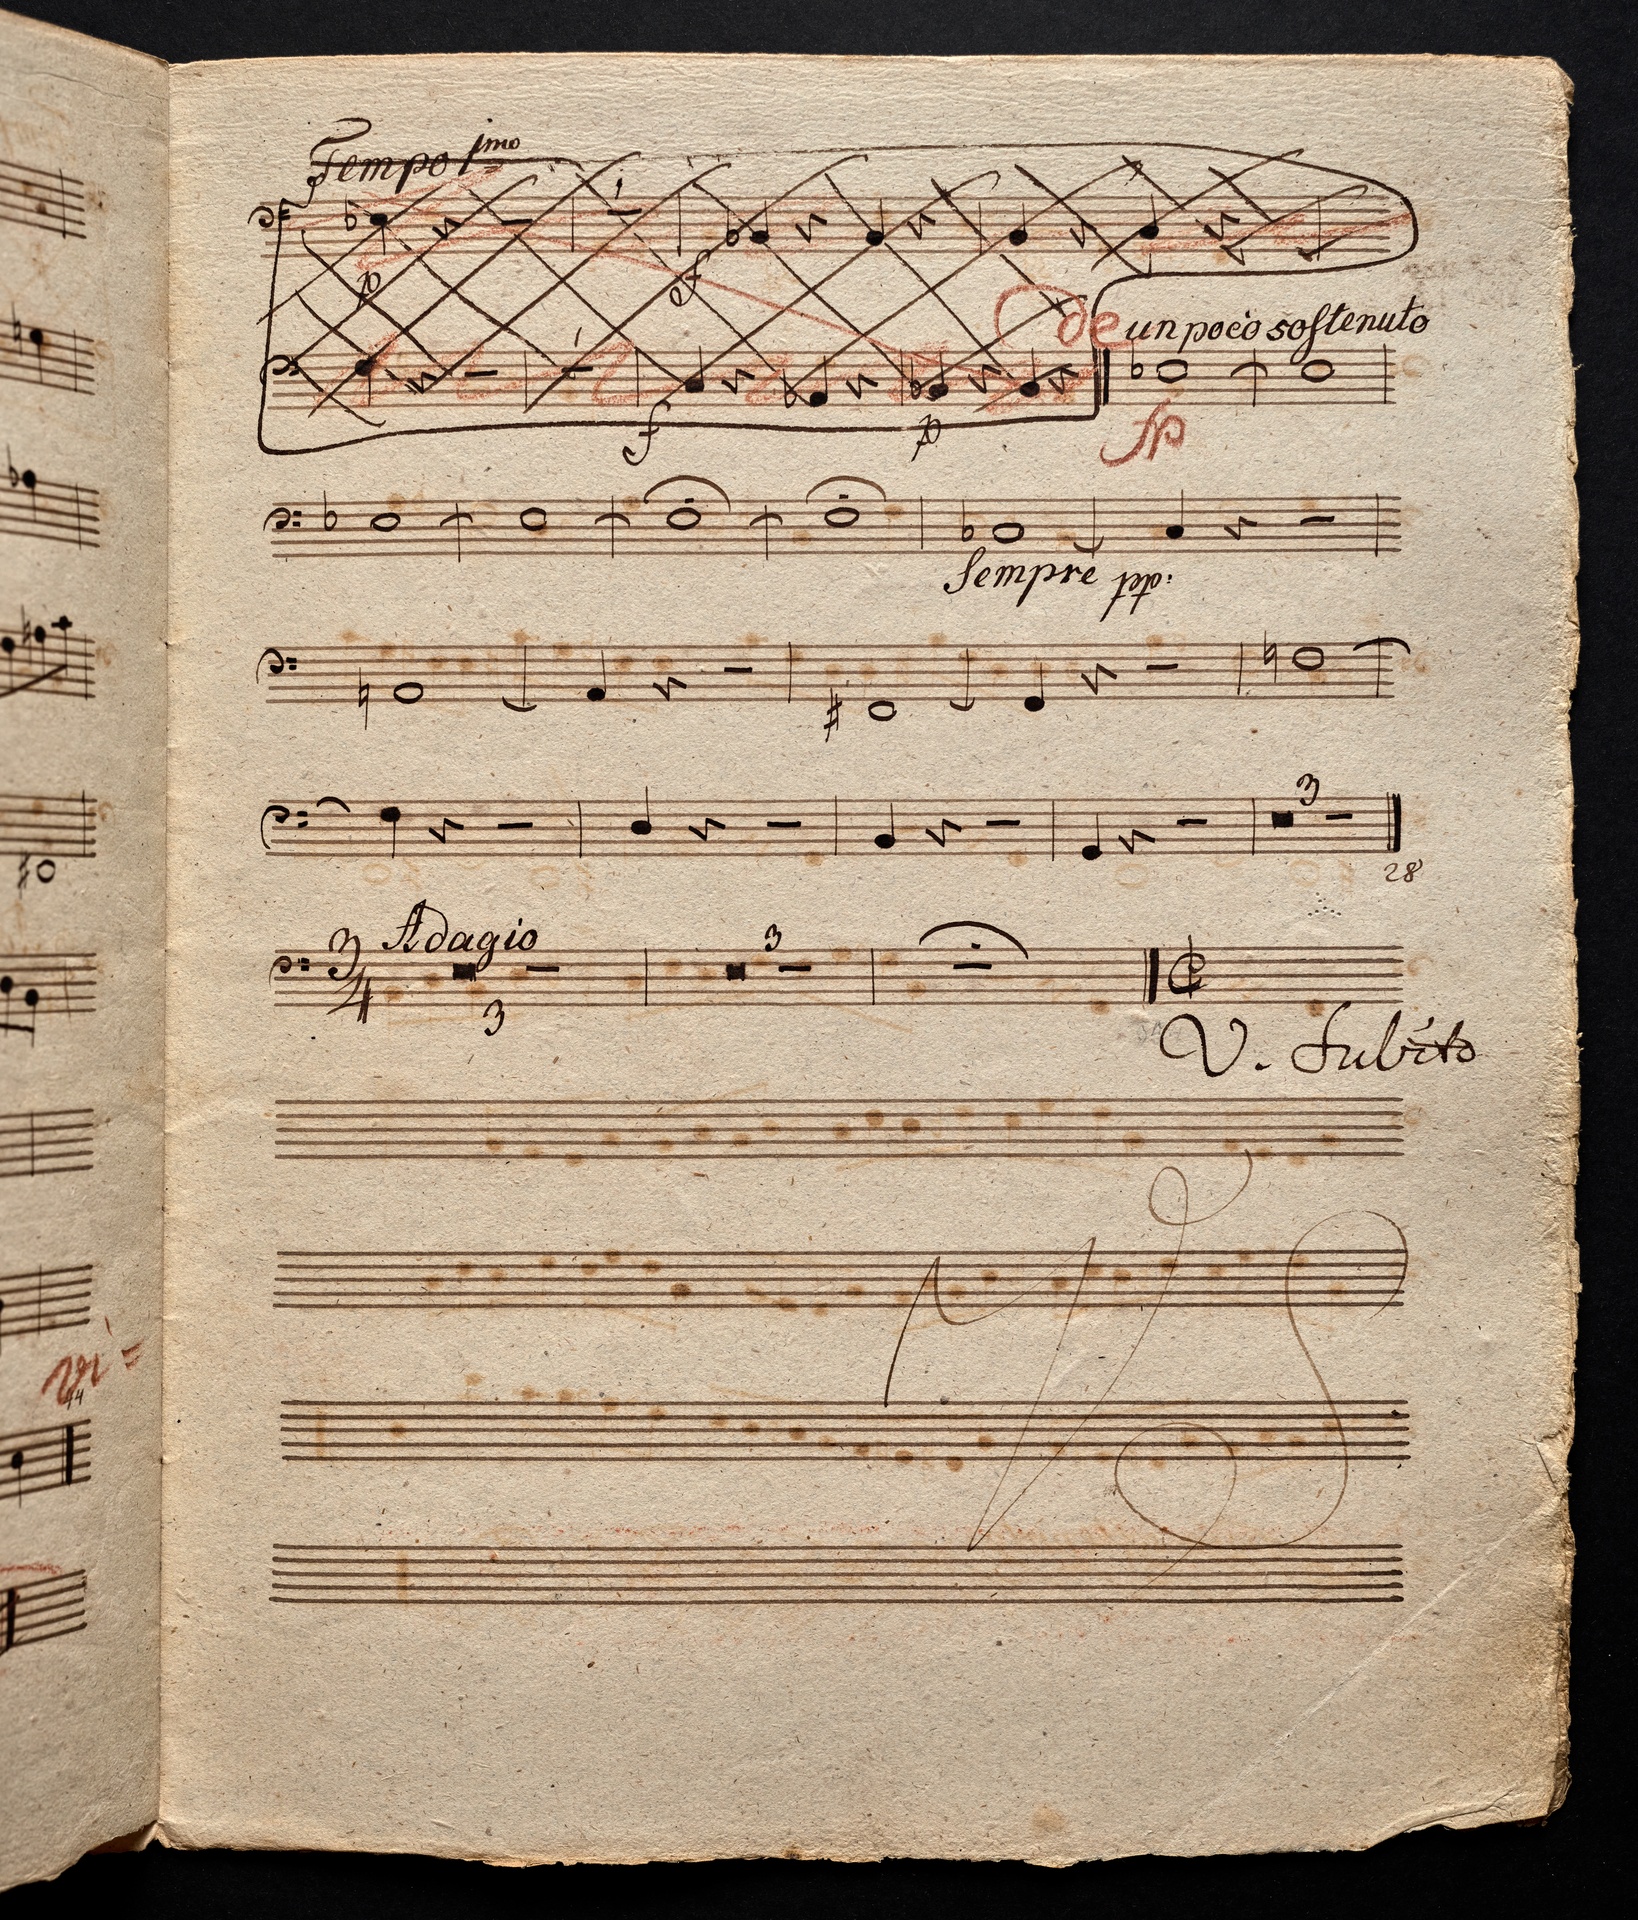 Tempo 1mo
p f
de un poco sostenuto
f p fp
Sempre pp:
3
28
3/4 Adagio 3
3
V. Subito
44